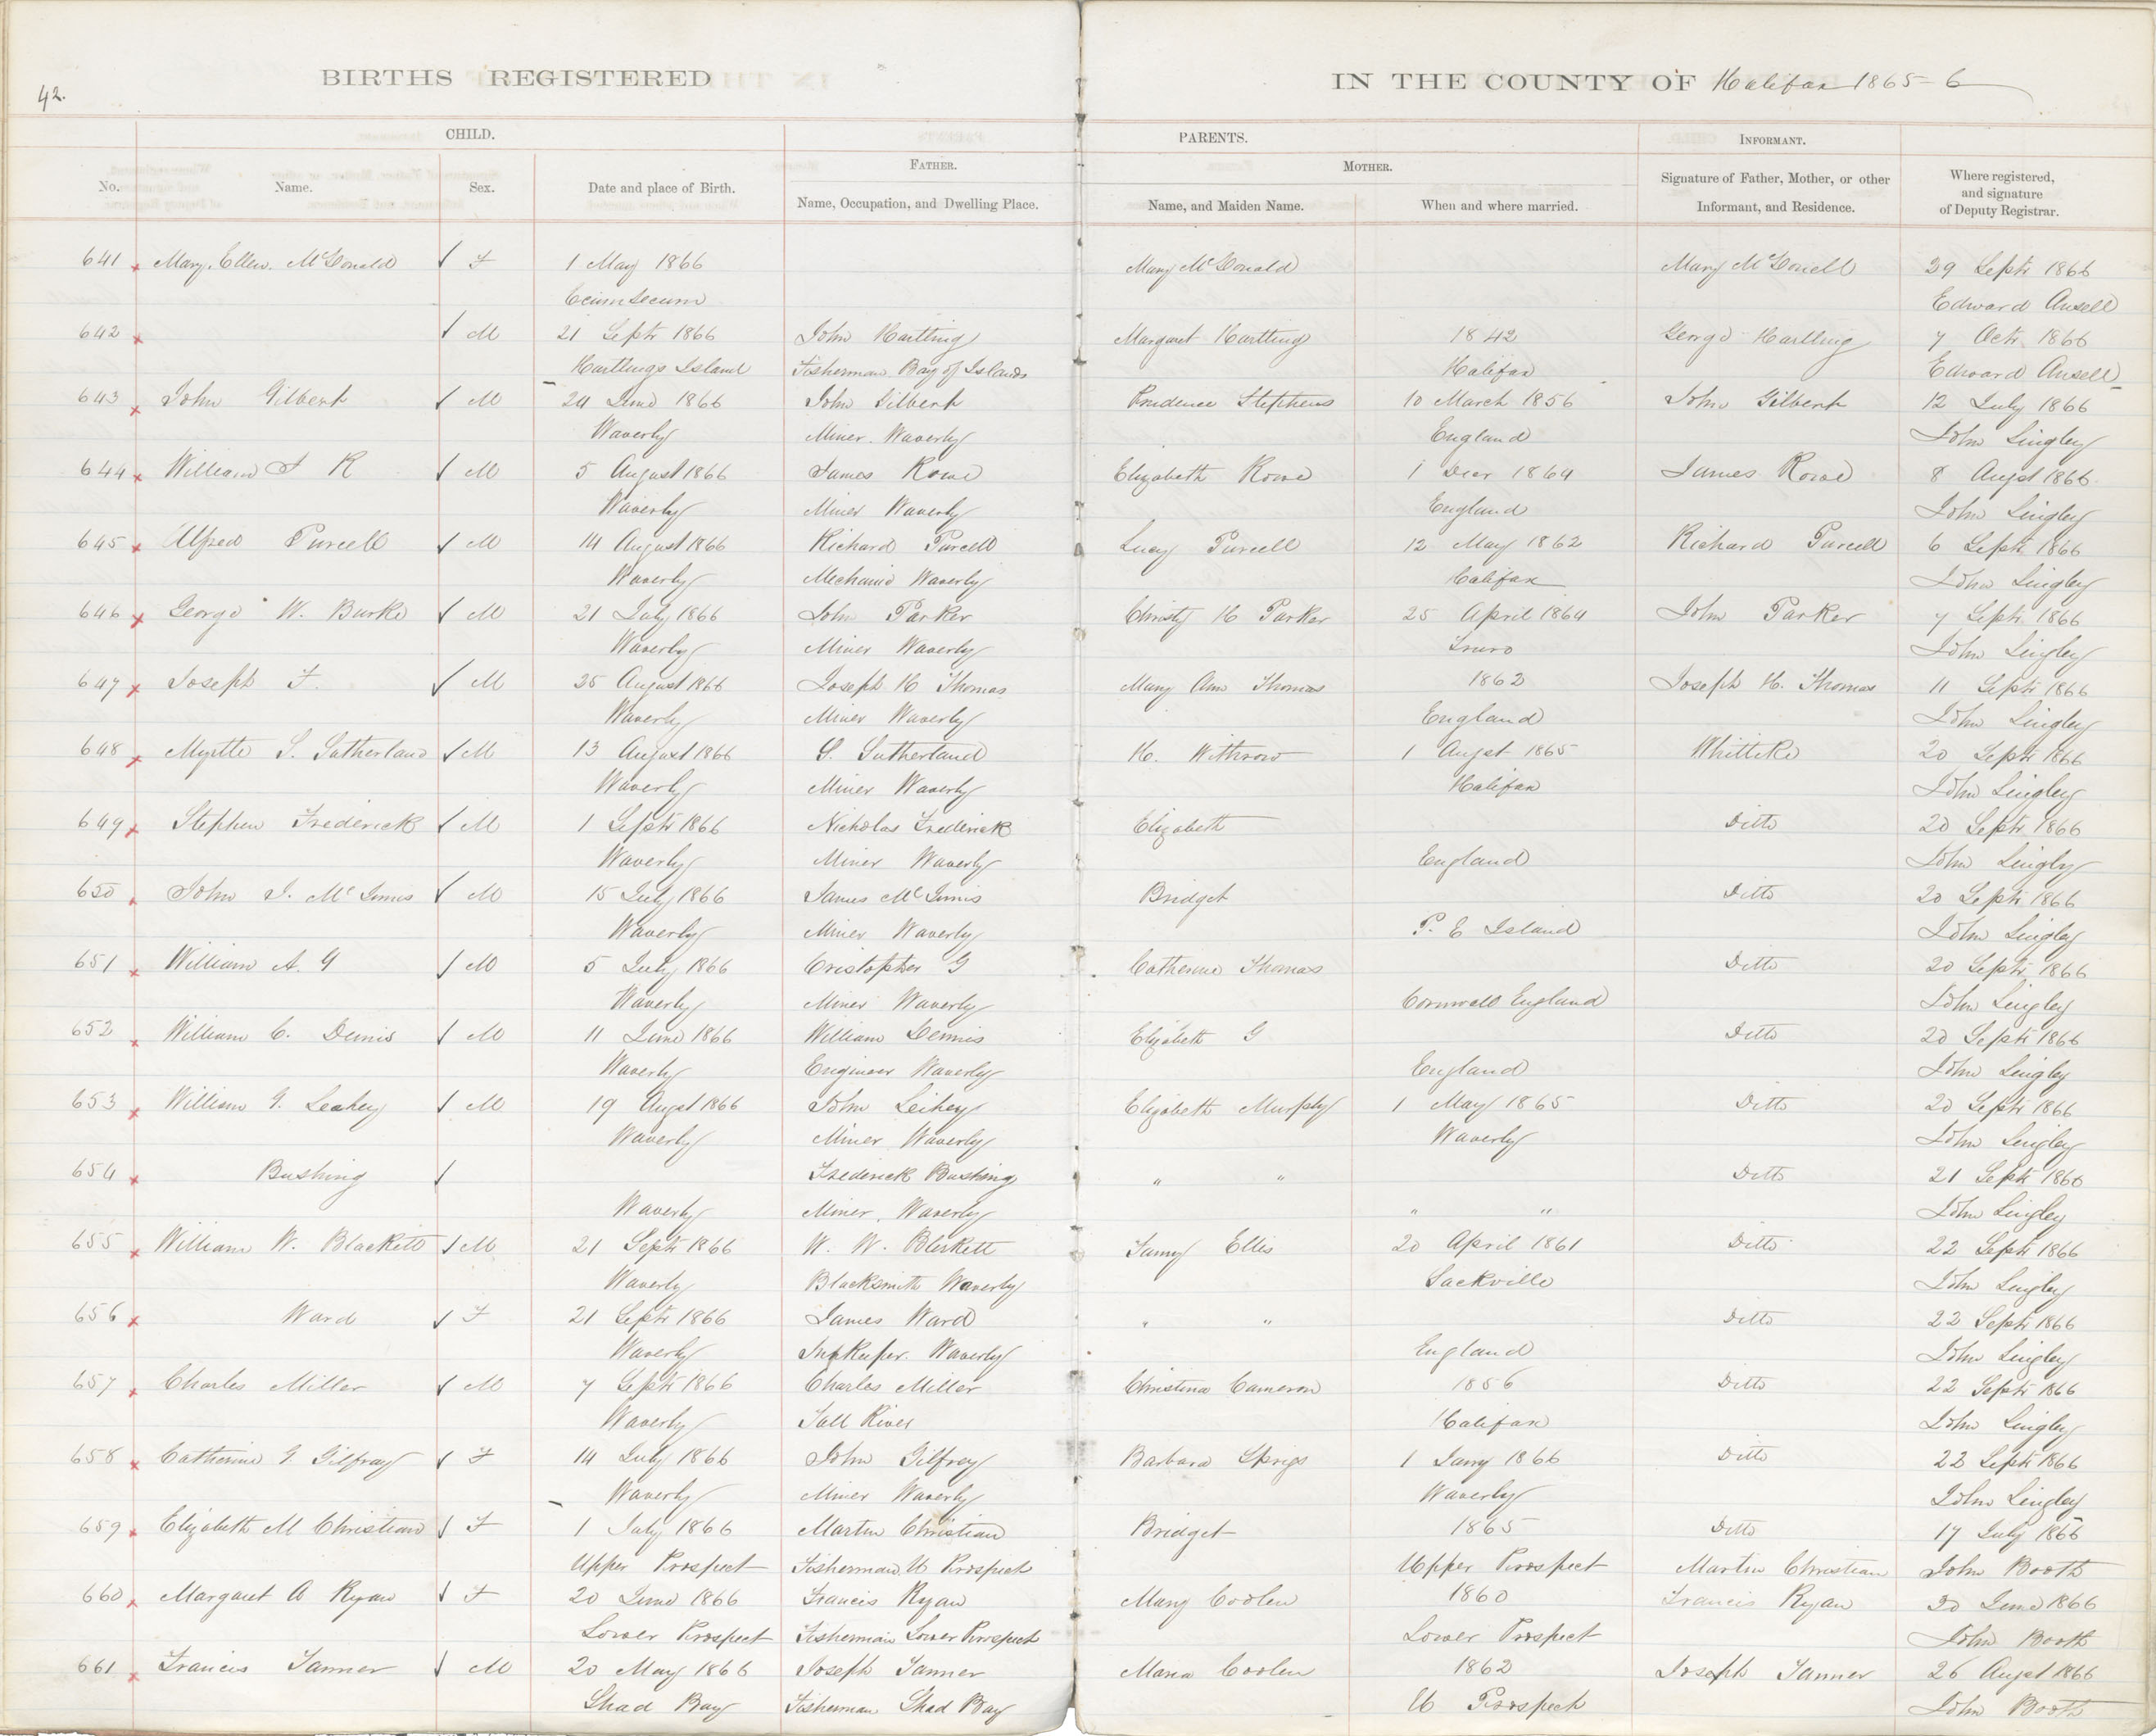 42.
BIRTHS REGISTERED IN THE COUNTY OF Halifax 1865-6
CHILD. PARENTS. INFORMANT.
FATHER. MOTHER.
No. Name. Sex. Date and place of Birth. Name, Occupation, and Dwelling Place. Name, and Maiden Name. When and where married. Signature of Father, Mother, or other Informant, and Residence. Where registered, and signature of Deputy Registrar.
641 Mary Ellen McDonald F 1 May 1866 Mary McDonald Mary McDonell 29 Septr 1866
Ecum Secum Edward Ansell
642 M 21 Septr 1866 John Hartling Margaret Hartling 1842 George Hartling 7 Octr 1866
Hartlings Island Fisherman Bay of Islands Halifax Edward Ansell
643 John Gilbert M 24 June 1866 John Gilbert Prudence Stephens 10 March 1856 John Gilbert 12 July 1866
Waverly Miner. Waverly England John Lingley
644 William J R M 5 August 1866 James Rowe Elizabeth Rowe 1 Decr 1864 James Rowe 8 Augst 1866
Waverly Miner Waverly England John Lingley
645 Alfred Purcell M 14 August 1866 Richard Purcell Lucy Purcell 12 May 1862 Richard Purcell 6 Septr 1866
Waverly Mechanic Waverly Halifax John Lingley
646 George W. Burke M 21 July 1866 John Parker Christy H Parker 25 April 1864 John Parker 7 Septr 1866
Waverly Miner Waverly Truro John Lingley
647 Joseph F. M 25 August 1866 Joseph H Thomas Mary Ann Thomas 1862 Joseph H. Thomas 11 Septr 1866
Waverly Miner Waverly England John Lingley
648 Myrtle S. Sutherland M 13 August 1866 S. Sutherland H. Withrow 1 Augst 1865 Whittike 20 Septr 1866
Waverly Miner Waverly Halifax John Lingley
649 Stephen Frederick M 1 Septr 1866 Nicholas Frederick Elizabeth Ditto 20 Septr 1866
Waverly Miner Waverly England John Lingley
650 John J. McGinnis M 15 July 1866 James McGinnis Bridget Ditto 20 Septr 1866
Waverly Miner Waverly P. E Island John Lingley
651 William A. G M 5 July 1866 Cristopher G Catherine Thomas Ditto 20 Septr 1866
Waverly Miner Waverly Cornwell England John Lingley
652 William C. Dennis M 11 June 1866 William Dennis Elizabeth G Ditto 20 Septr 1866
Waverly Engineer Waverly England John Lingley
653 William G. Leahey M 19 Augst 1866 John Leihey Elizabeth Murphy 1 May 1865 Ditto 20 Septr 1866
Waverly Miner Waverly Waverly John Lingley
654 Bushing Frederick Bushing " " Ditto 21 Septr 1866
Waverly Miner. Waverly " " John Lingley
655 William W. Blackett M 21 Septr 1866 W. W. Blackett Fanny Ellis 20 April 1861 Ditto 22 Septr 1866
Waverly Blacksmith Waverly Sackville John Lingley
656 Ward F 21 Septr 1866 James Ward " " Ditto 22 Septr 1866
Waverly Innkeeper. Waverly England John Lingley
657 Charles Miller M 7 Septr 1866 Charles Miller Christina Cameron 1856 Ditto 22 Septr 1866
Waverly Fall River Halifax John Lingley
658 Catherine G. Gilfray F 14 July 1866 John Gilfrey Barbara Sprigs 1 Jany 1866 Ditto 22 Septr 1866
Waverly Miner Waverly Waverly John Lingley
659 Elizabeth M Christian F 1 July 1866 Martin Christian Bridget 1865 Ditto 17 July 1866
Upper Prospect Fisherman U Prospect Upper Prospect Martin Christian John Booth
660 Margaret A Ryan F 20 June 1866 Francis Ryan Mary Coolen 1860 Francis Ryan 30 June 1866
Lower Prospect Fisherman Lower Prospect Lower Prospect John Booth
661 Francis Tanner M 20 May 1866 Joseph Tanner Maria Coolen 1862 Joseph Tanner 26 Augst 1866
Shad Bay Fisherman Shad Bay U Prospect John Booth